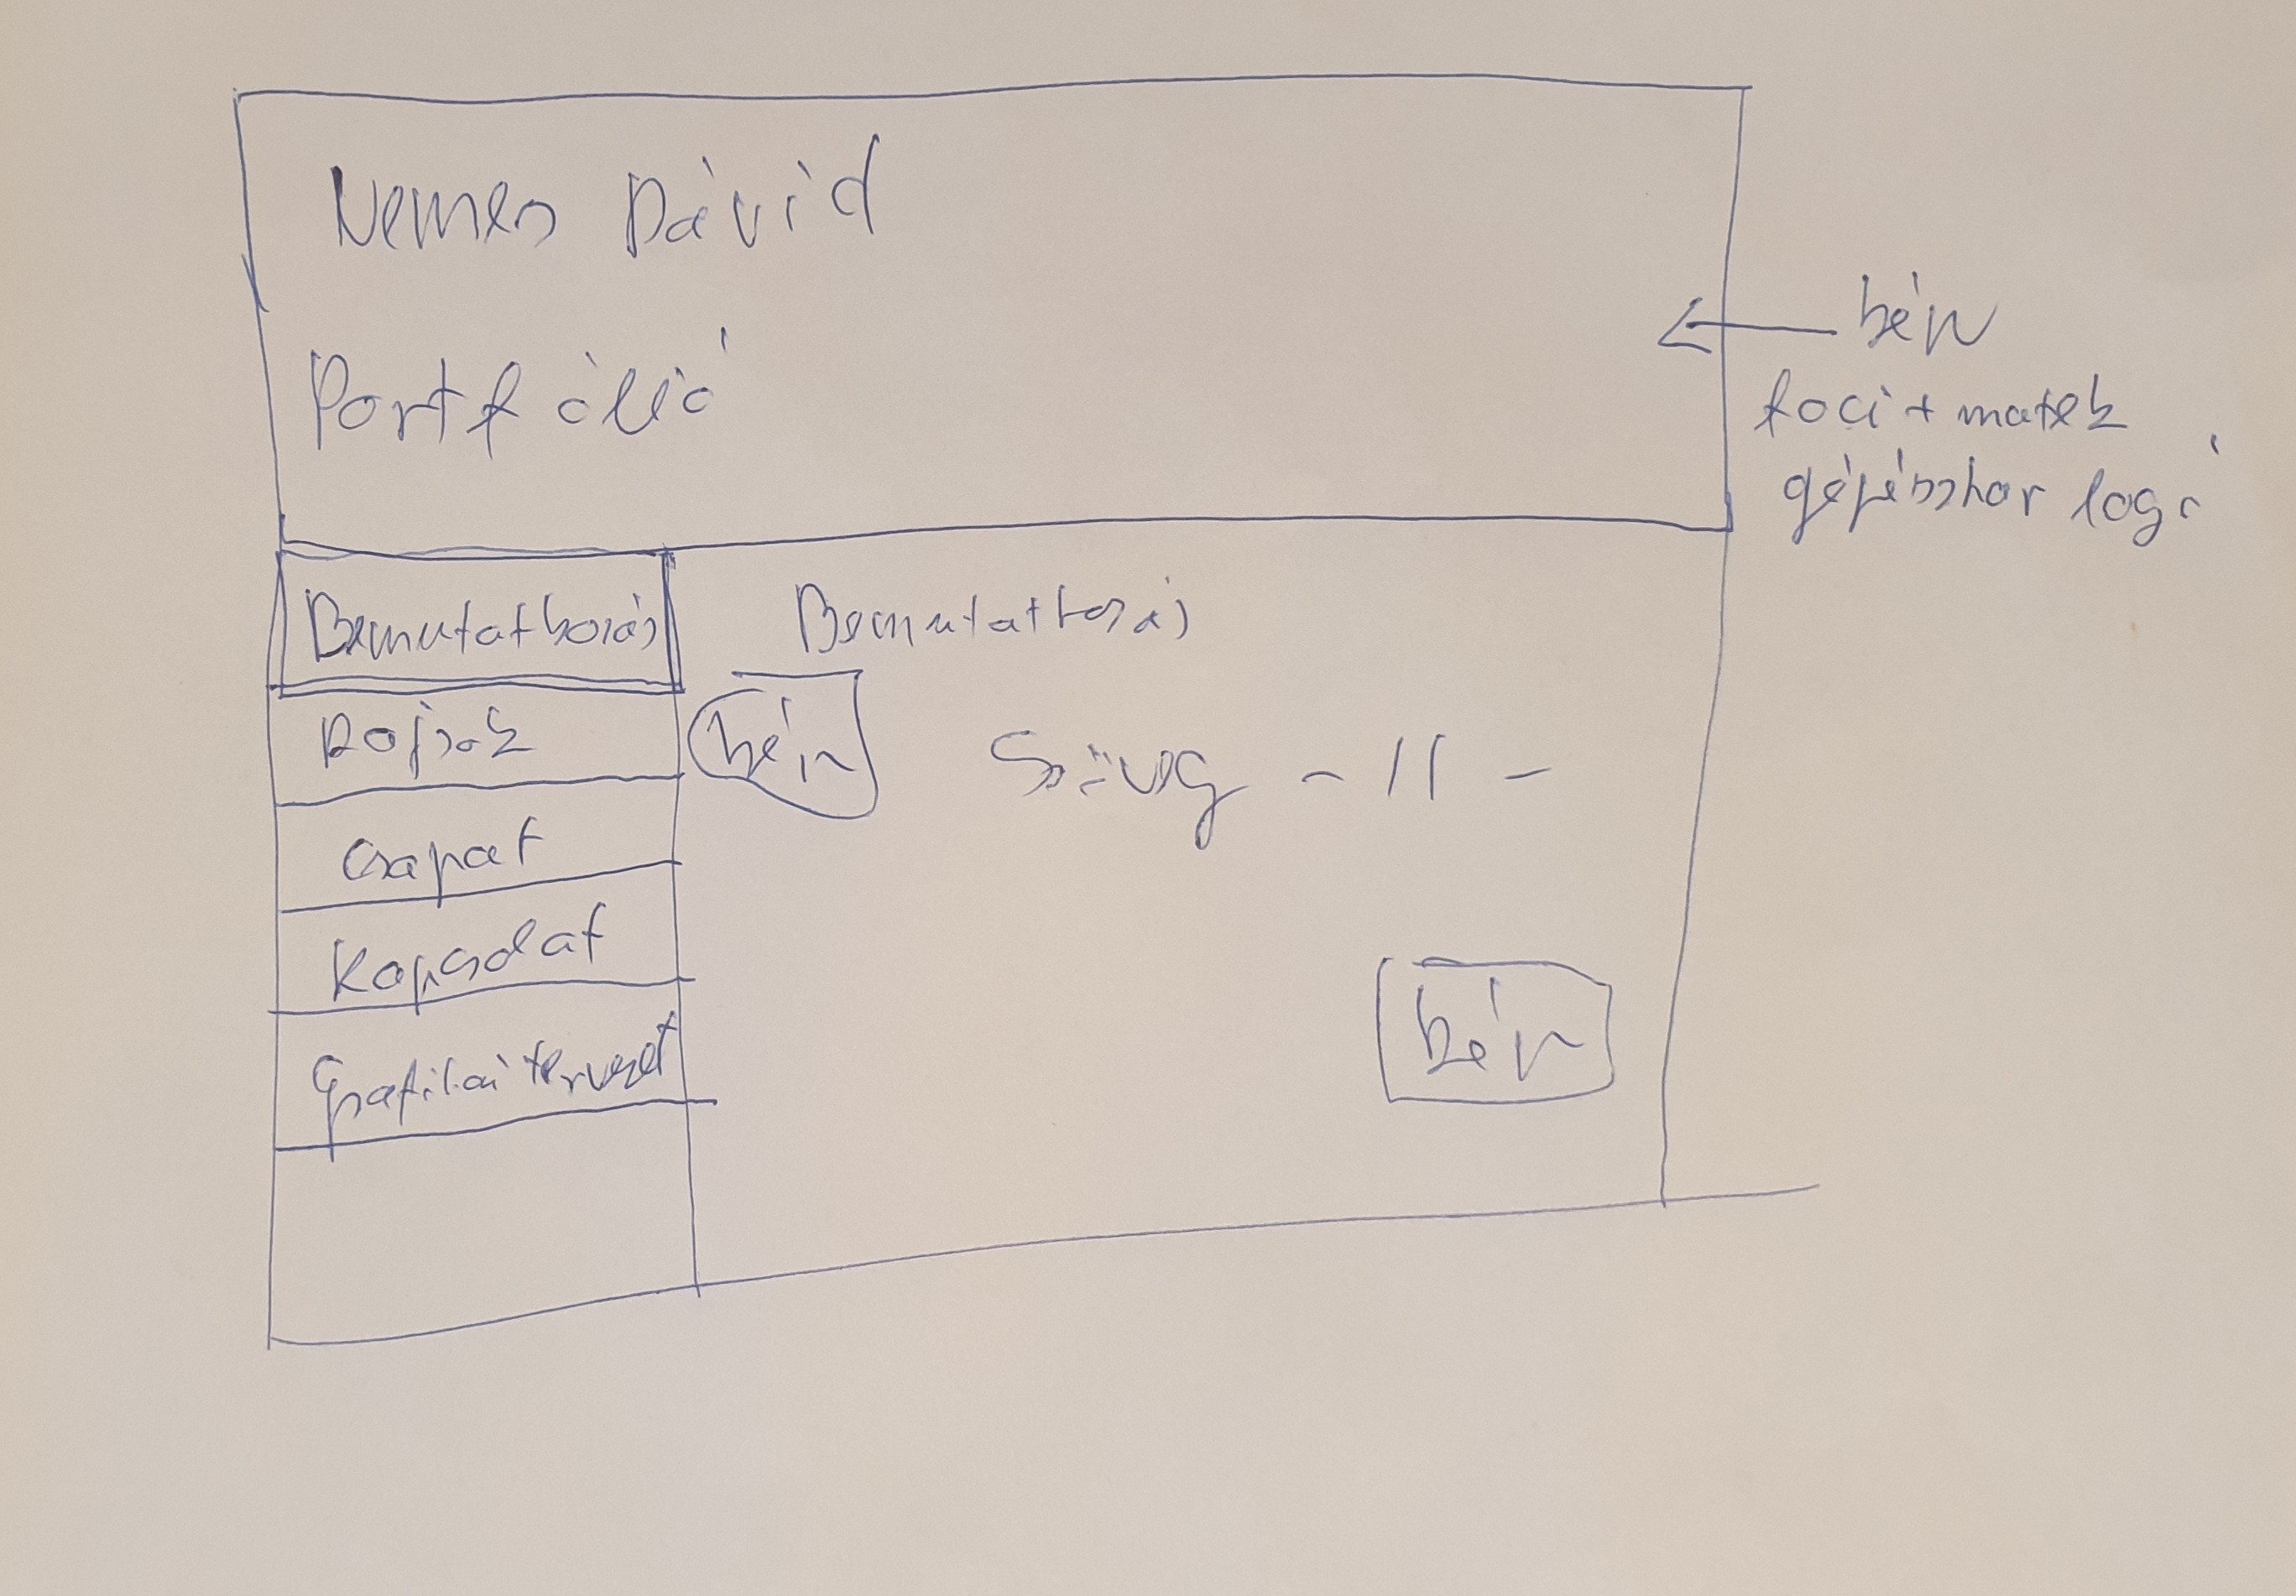 Nemes Dávid
Portfólió
kép
foci + matek
gépészkar logó
Bemutatkozás
Rajzok
Csapat
Kapcsolat
Grafikai tervezet
Bemutatkozás
kép
Szöveg - 11 -
kép